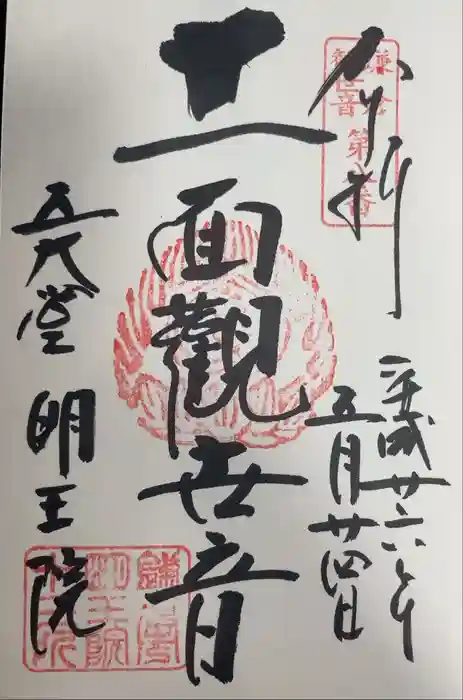 奉拝
鎌倉
観世音
第八番
平成廿六年
五月廿四日
十一面觀世音
五大堂 明王院
鎌倉
明王院